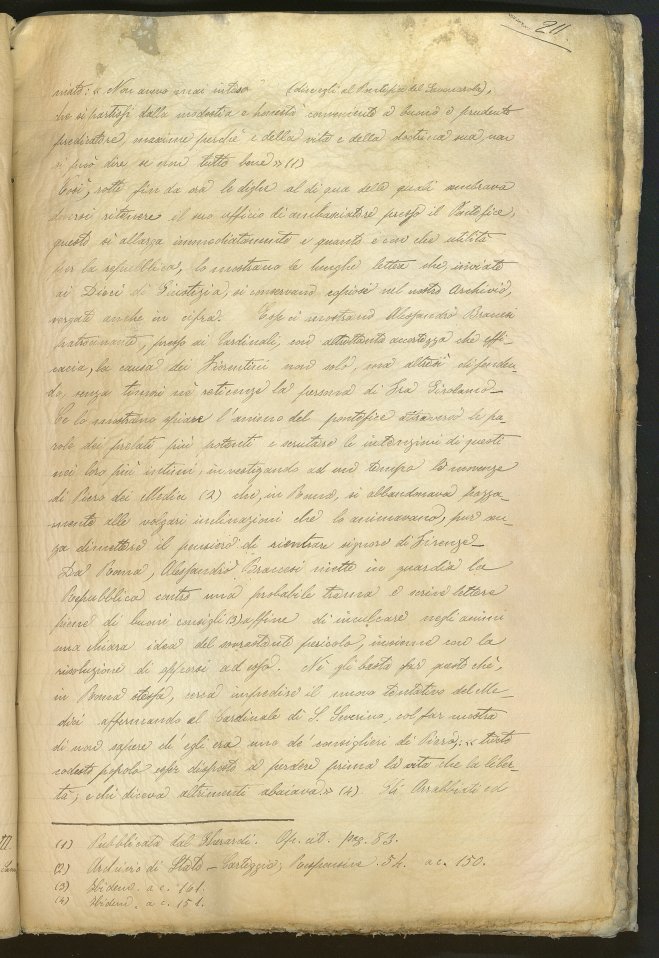 211.
niato: « Non avevo mai inteso (dicevagli al Pontefice del Savonarola),
che si partissi dalla modestia e honestà conveniente a buono e prudente
predicatore, maxime perchè e della vita e della doctrina sua, non
si può dire se non tutto bene » (1)
Così, rotte fin da ora le dighe al di qua delle quali sembrava
doversi ritenere il suo ufficio di ambasciatore presso il Pontefice,
questo si allarga immediatamente e quanto e con che utilità
per la repubblica, lo mostrano le lunghe lettere che, inviate
ai Dieci di Giustizia, si conservano copiose nel nostro Archivio,
vergate anche in cifra. Esse ci mostrano Alessandro Bracci
patrocinante, presso ai Cardinali, con altrettanta accortezza che effi-
cacia, la causa dei Fiorentini non solo, ma altresì difenden-
do, senza timori nè reticenze la persona di Fra Girolamo_
Ce lo mostrano spiare l'animo del pontefice attraverso le pa-
role dei prelati più potenti e scrutare le intenzioni di questi
nei loro più intimi, investigando ad un tempo le movenze
di Piero dei Medici (2) che, in Roma, si abbandonava pazza-
mente alle volgari inclinazioni che lo animavano, pur sen-
za dimettere il pensiero di rientrare signore di Firenze_
Da Roma, Alessandro Braccesi mette in guardia la
Repubblica contro una probabile trama e scrive lettere
piene di buoni consigli (3) affine di inculcare negli animi
una chiara idea del sovrastante pericolo, insieme con la
risoluzione di opporsi ad esso. Nè gli basta far questo chè,
in Roma stessa, cerca impedire il nuovo tentativo del Me-
dici affermando al Cardinale di S. Severino, col far mostra
di non sapere ch'egli era uno de' consiglieri di Piero,: « tutto
codesto popolo esser disposto a perdere prima la vita che la liber-
tà; e chi diceva altrimenti abaiava. » (4). Gli Arrabbiati ed
(1) Pubblicata dal Gherardi. Op. cit. pag. 83.
(2) Archivio di Stato _ Carteggio, Responsive 54. a c. 150.
(3) Ibidem. a c. 161.
(4) Ibidem. a c. 151.